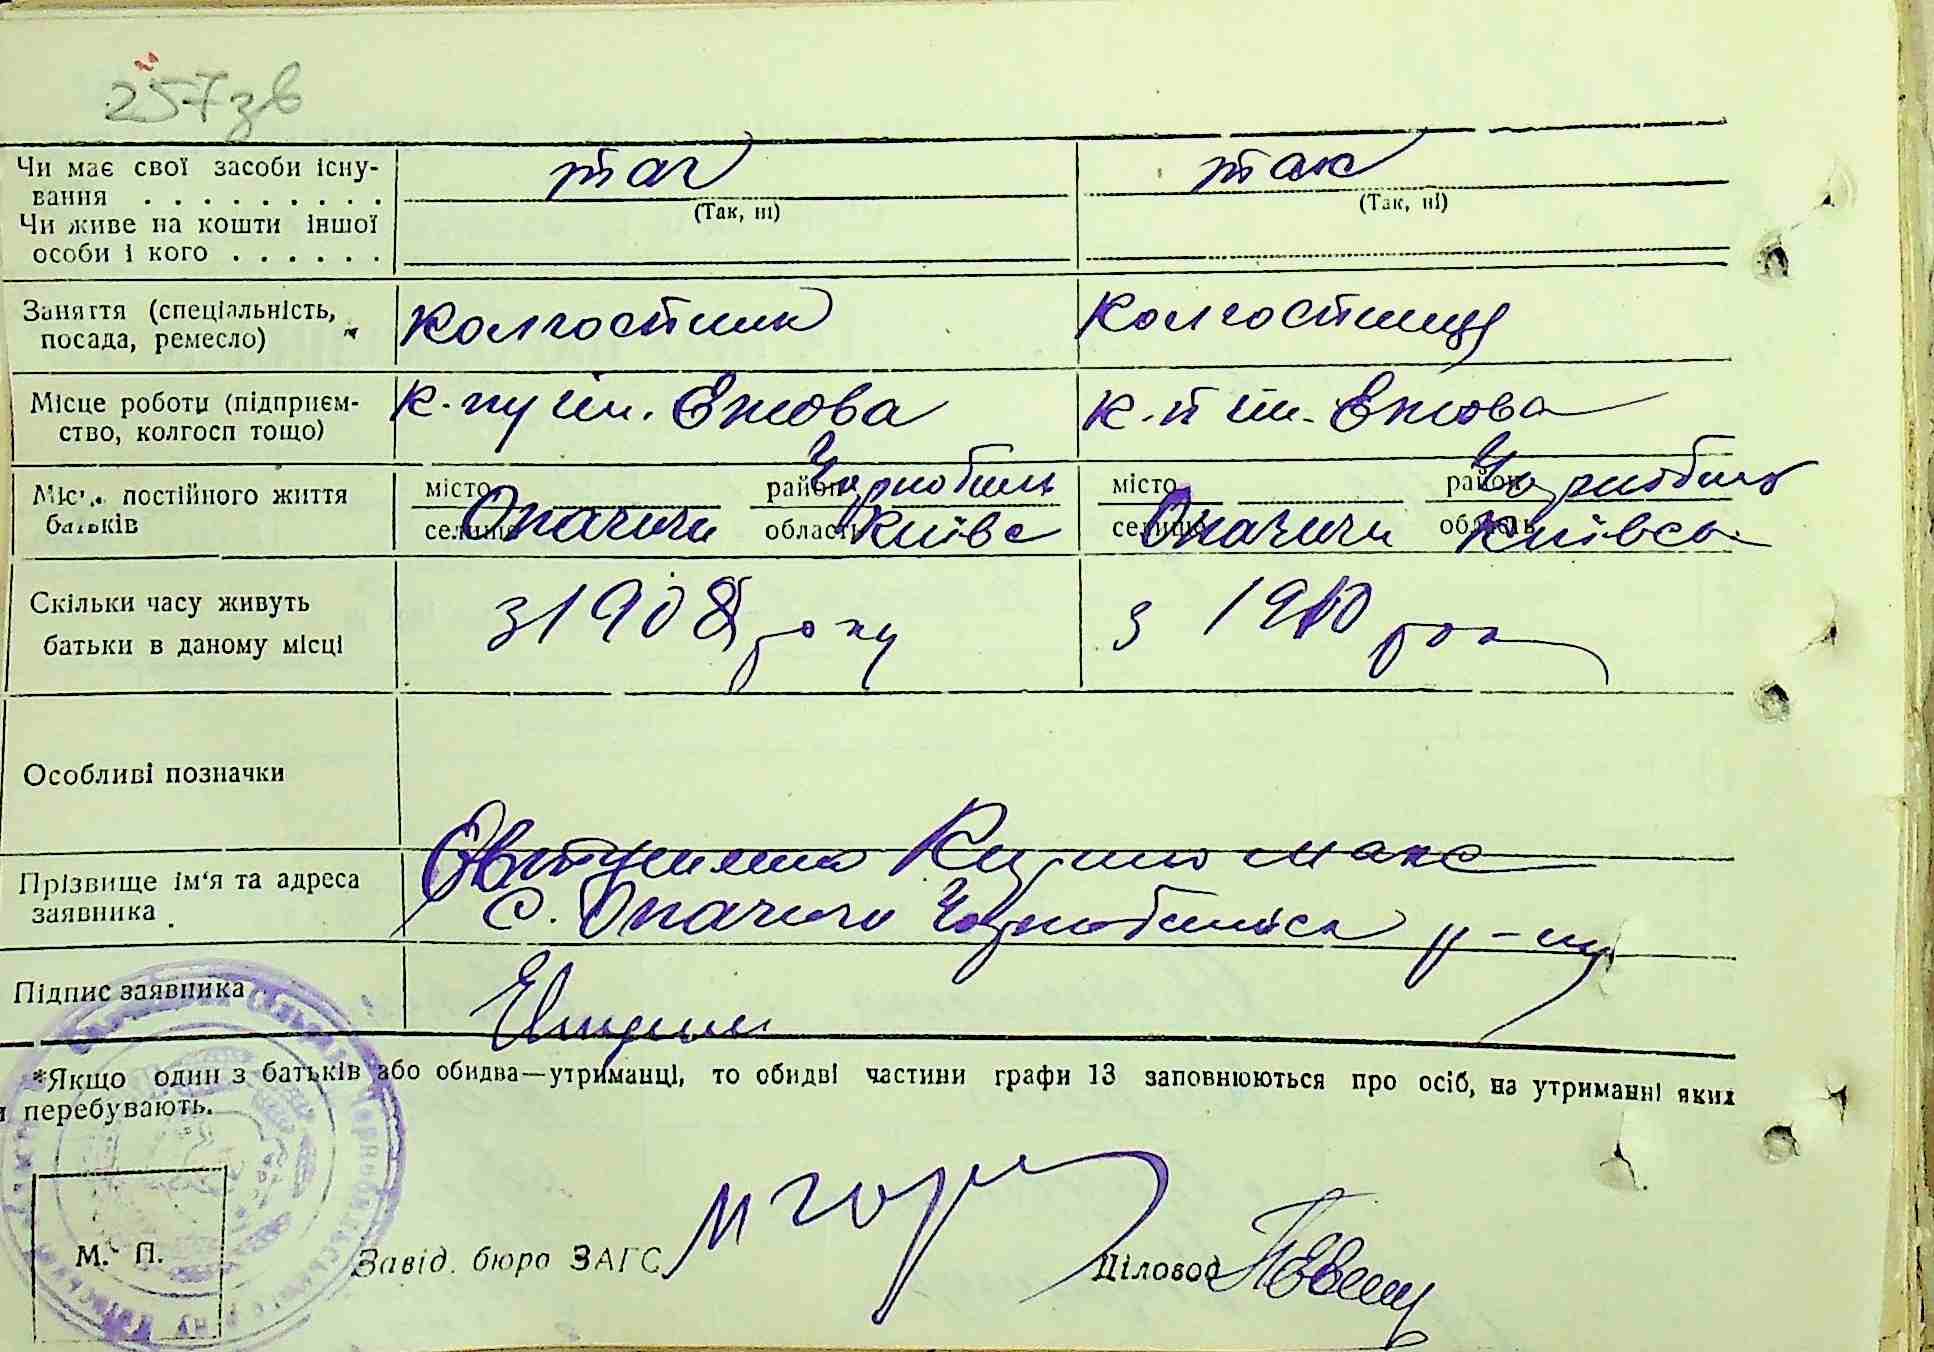 257зв
Чи має свої засоби існу-
вання . . . . . . . . . .
так
(Так, ні)
так
(Так, ні)
Чи живе на кошти іншої
особи і кого . . . . . .
Заняття (спеціальність,
посада, ремесло)
Колгоспник
Колгоспниця
Місце роботи (підприєм-
ство, колгосп тощо)
к-пу ім. Ежова
к-п ім. Ежова
Місце постійного життя
батьків
місто
селище Опачичи
район Чорнобиль
область Київс
місто
селище Опачичи
район Чорнобиль
область Київськ
Скільки часу живуть
батьки в даному місці
з 1908 року
з 1910 рок
Особливі позначки
Прізвище ім'я та адреса
заявника
Макс
с. Опачичи Чорнобильськ р-ну
Підпис заявника
*Якщо один з батьків або обидва—утриманці, то обидві частини графи 13 заповнюються про осіб, на утриманні яких
и перебувають.
М. П.
Завід. бюро ЗАГС
Діловод